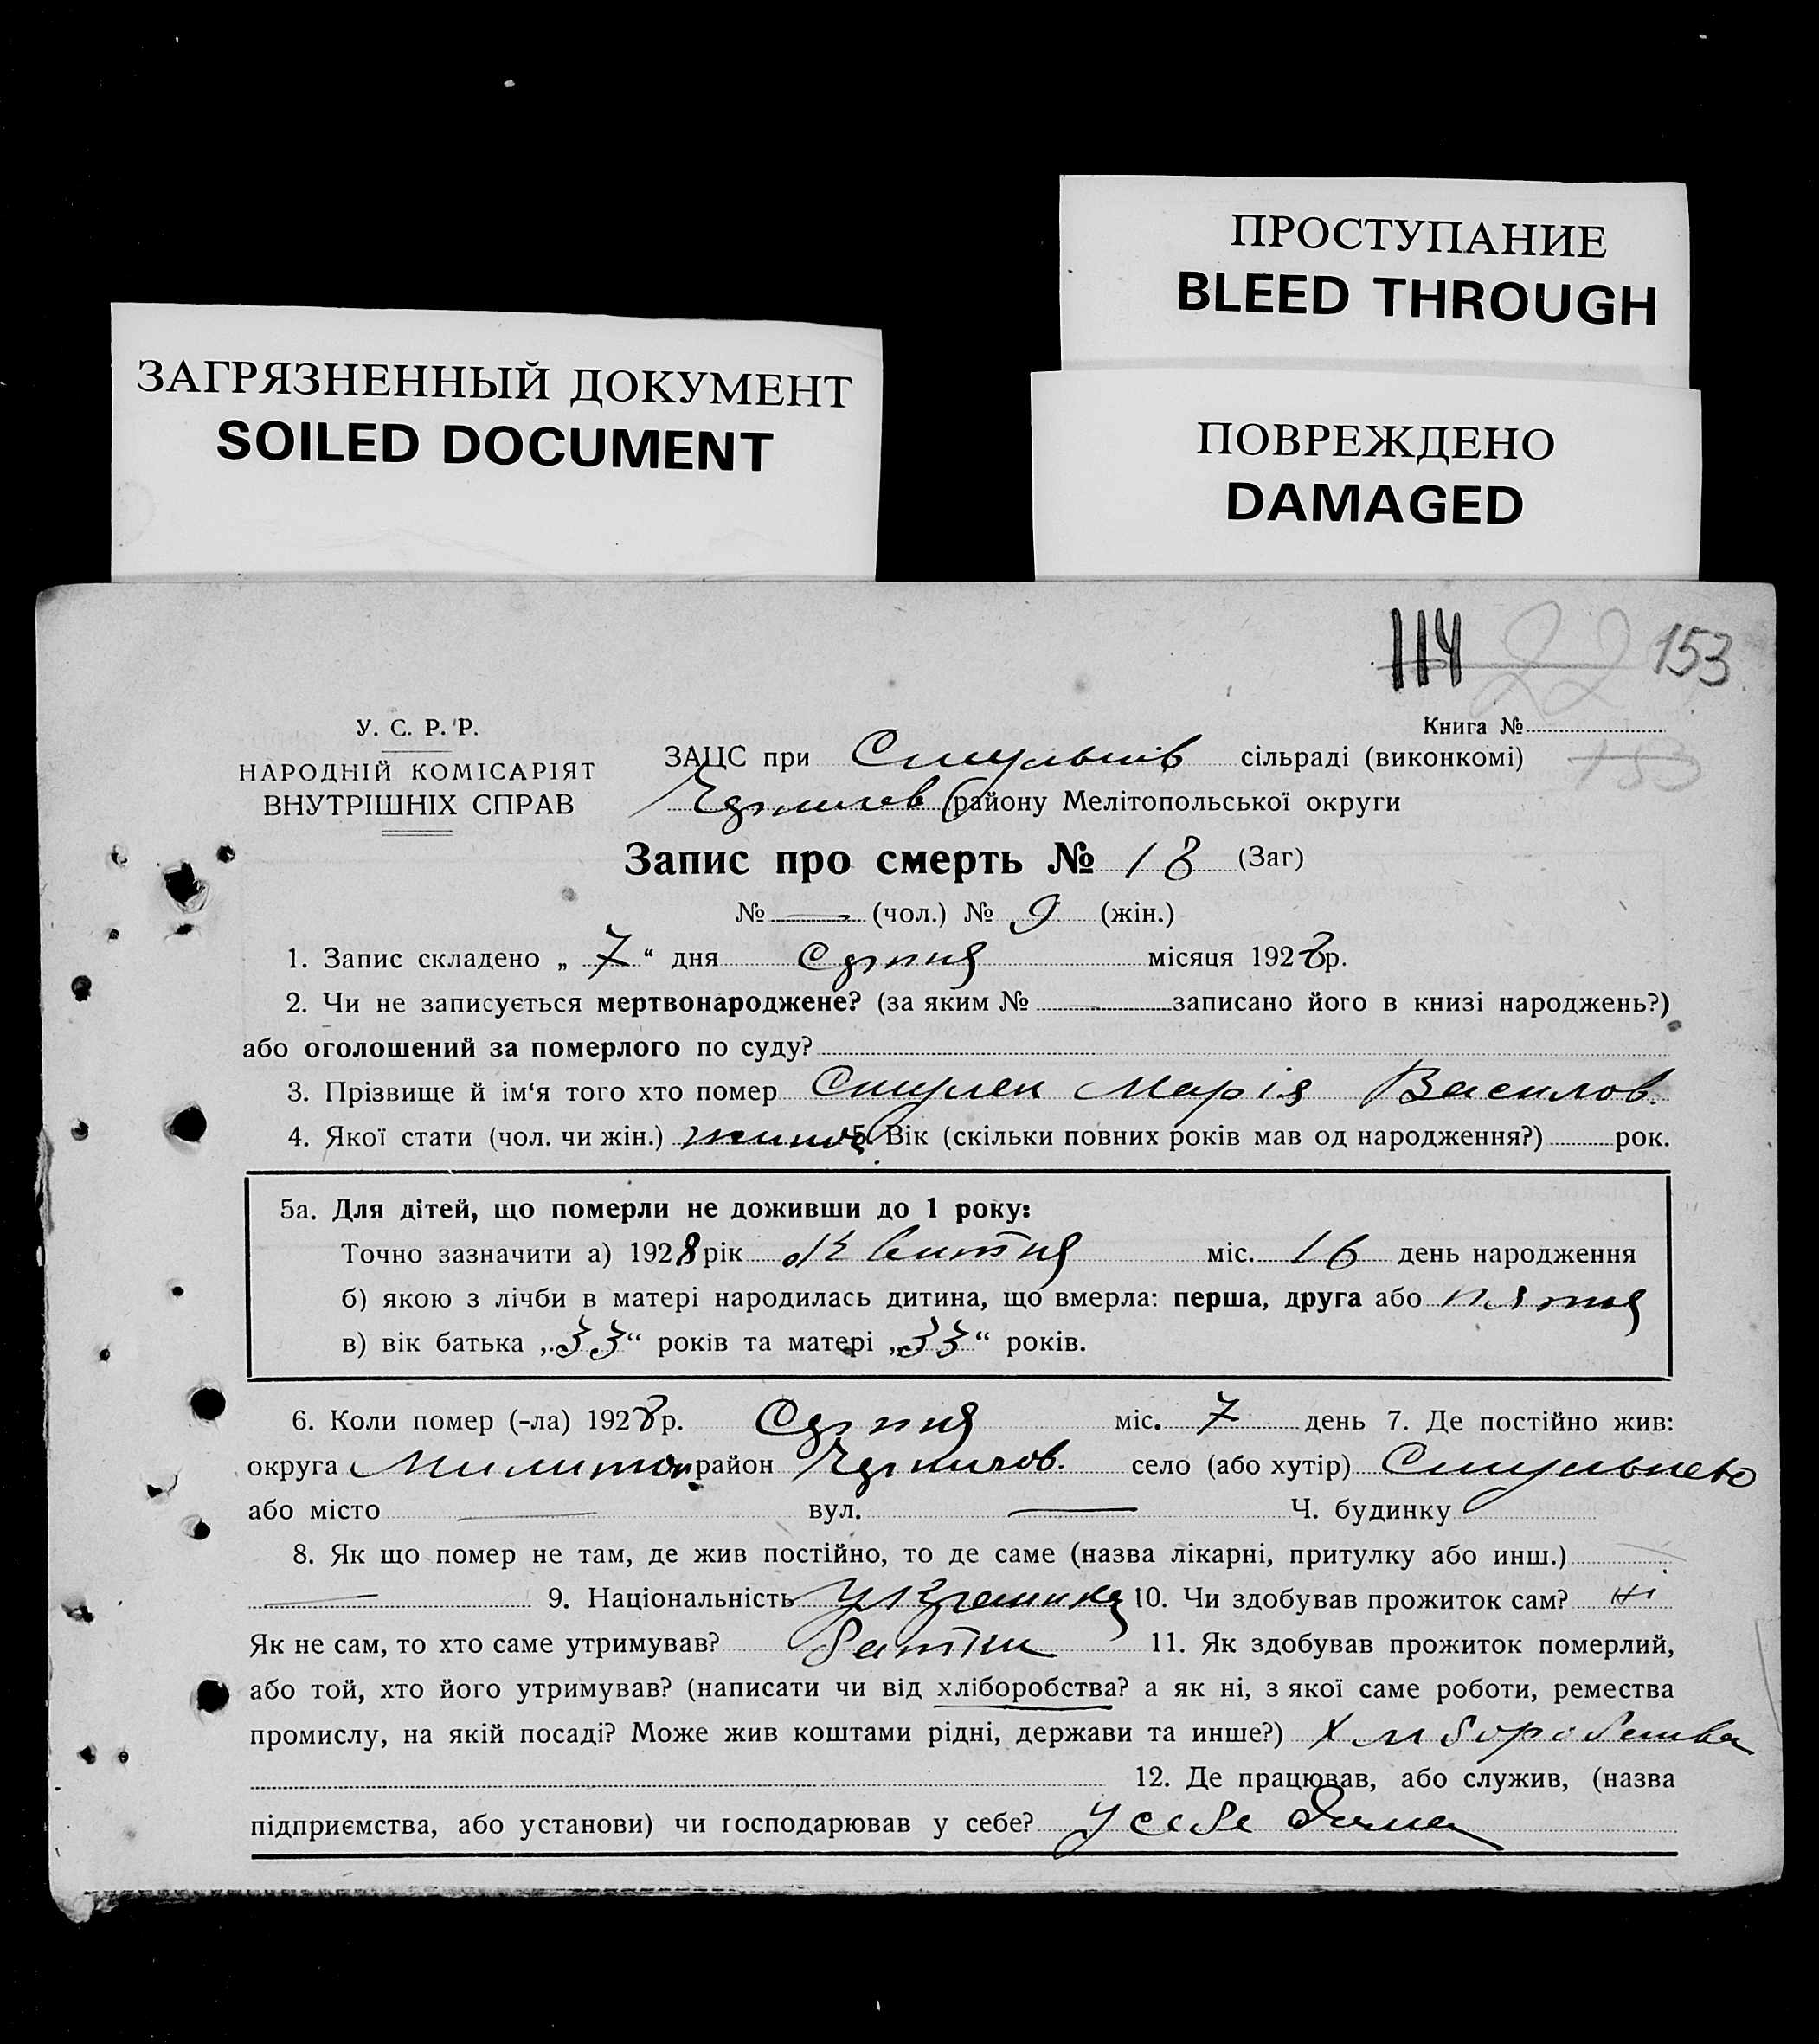 ПРОСТУПАНИЕ
BLEED THROUGH
ЗАГРЯЗНЕННЫЙ ДОКУМЕНТ
SOILED DOCUMENT
ПОВРЕЖДЕНО
DAMAGED
114 22 153
У. С. Р. Р.
НАРОДНІЙ КОМІСАРІЯТ
ВНУТРІШНІХ СПРАВ
Книга №
153
ЗАЦС при сільраді (виконкомі)
району Мелітопольської округи
Запис про смерть № 18 (Заг)
№ — (чол.) № 9 (жін.)
1. Запис складено „ 7 “ дня Серпня місяця 1928р.
2. Чи не записується мертвонароджене? (за яким № — записано його в книзі народжень?)
або оголошений за померлого по суду?
3. Прізвище й ім‘я того хто помер Марія Василов.
4. Якої стати (чол. чи жін.) 5. Вік (скільки повних років мав од народження?) рок.
5а. Для дітей, що померли не доживши до 1 року:
Точно зазначити а) 1928 рік Квітня міс. 16 день народження
б) якою з лічби в матері народилась дитина, що вмерла: перша, друга або пятая
в) вік батька „33“ років та матері „33“ років.
6. Коли помер (-ла) 1928р. Серпня міс. 7 день 7. Де постійно жив:
округа район село (або хутір)
або місто — вул. — Ч. будинку
8. Як що помер не там, де жив постійно, то де саме (назва лікарні, притулку або инш.)
— 9. Національність 10. Чи здобував прожиток сам? ні
Як не сам, то хто саме утримував? батки 11. Як здобував прожиток померлий,
або той, хто його утримував? (написати чи від хліборобства? а як ні, з якої саме роботи, ремества
промислу, на якій посаді? Може жив коштами рідні, держави та инше?) хлиборобства
12. Де працював, або служив, (назва
підприємства, або установи) чи господарював у себе? У себе дома